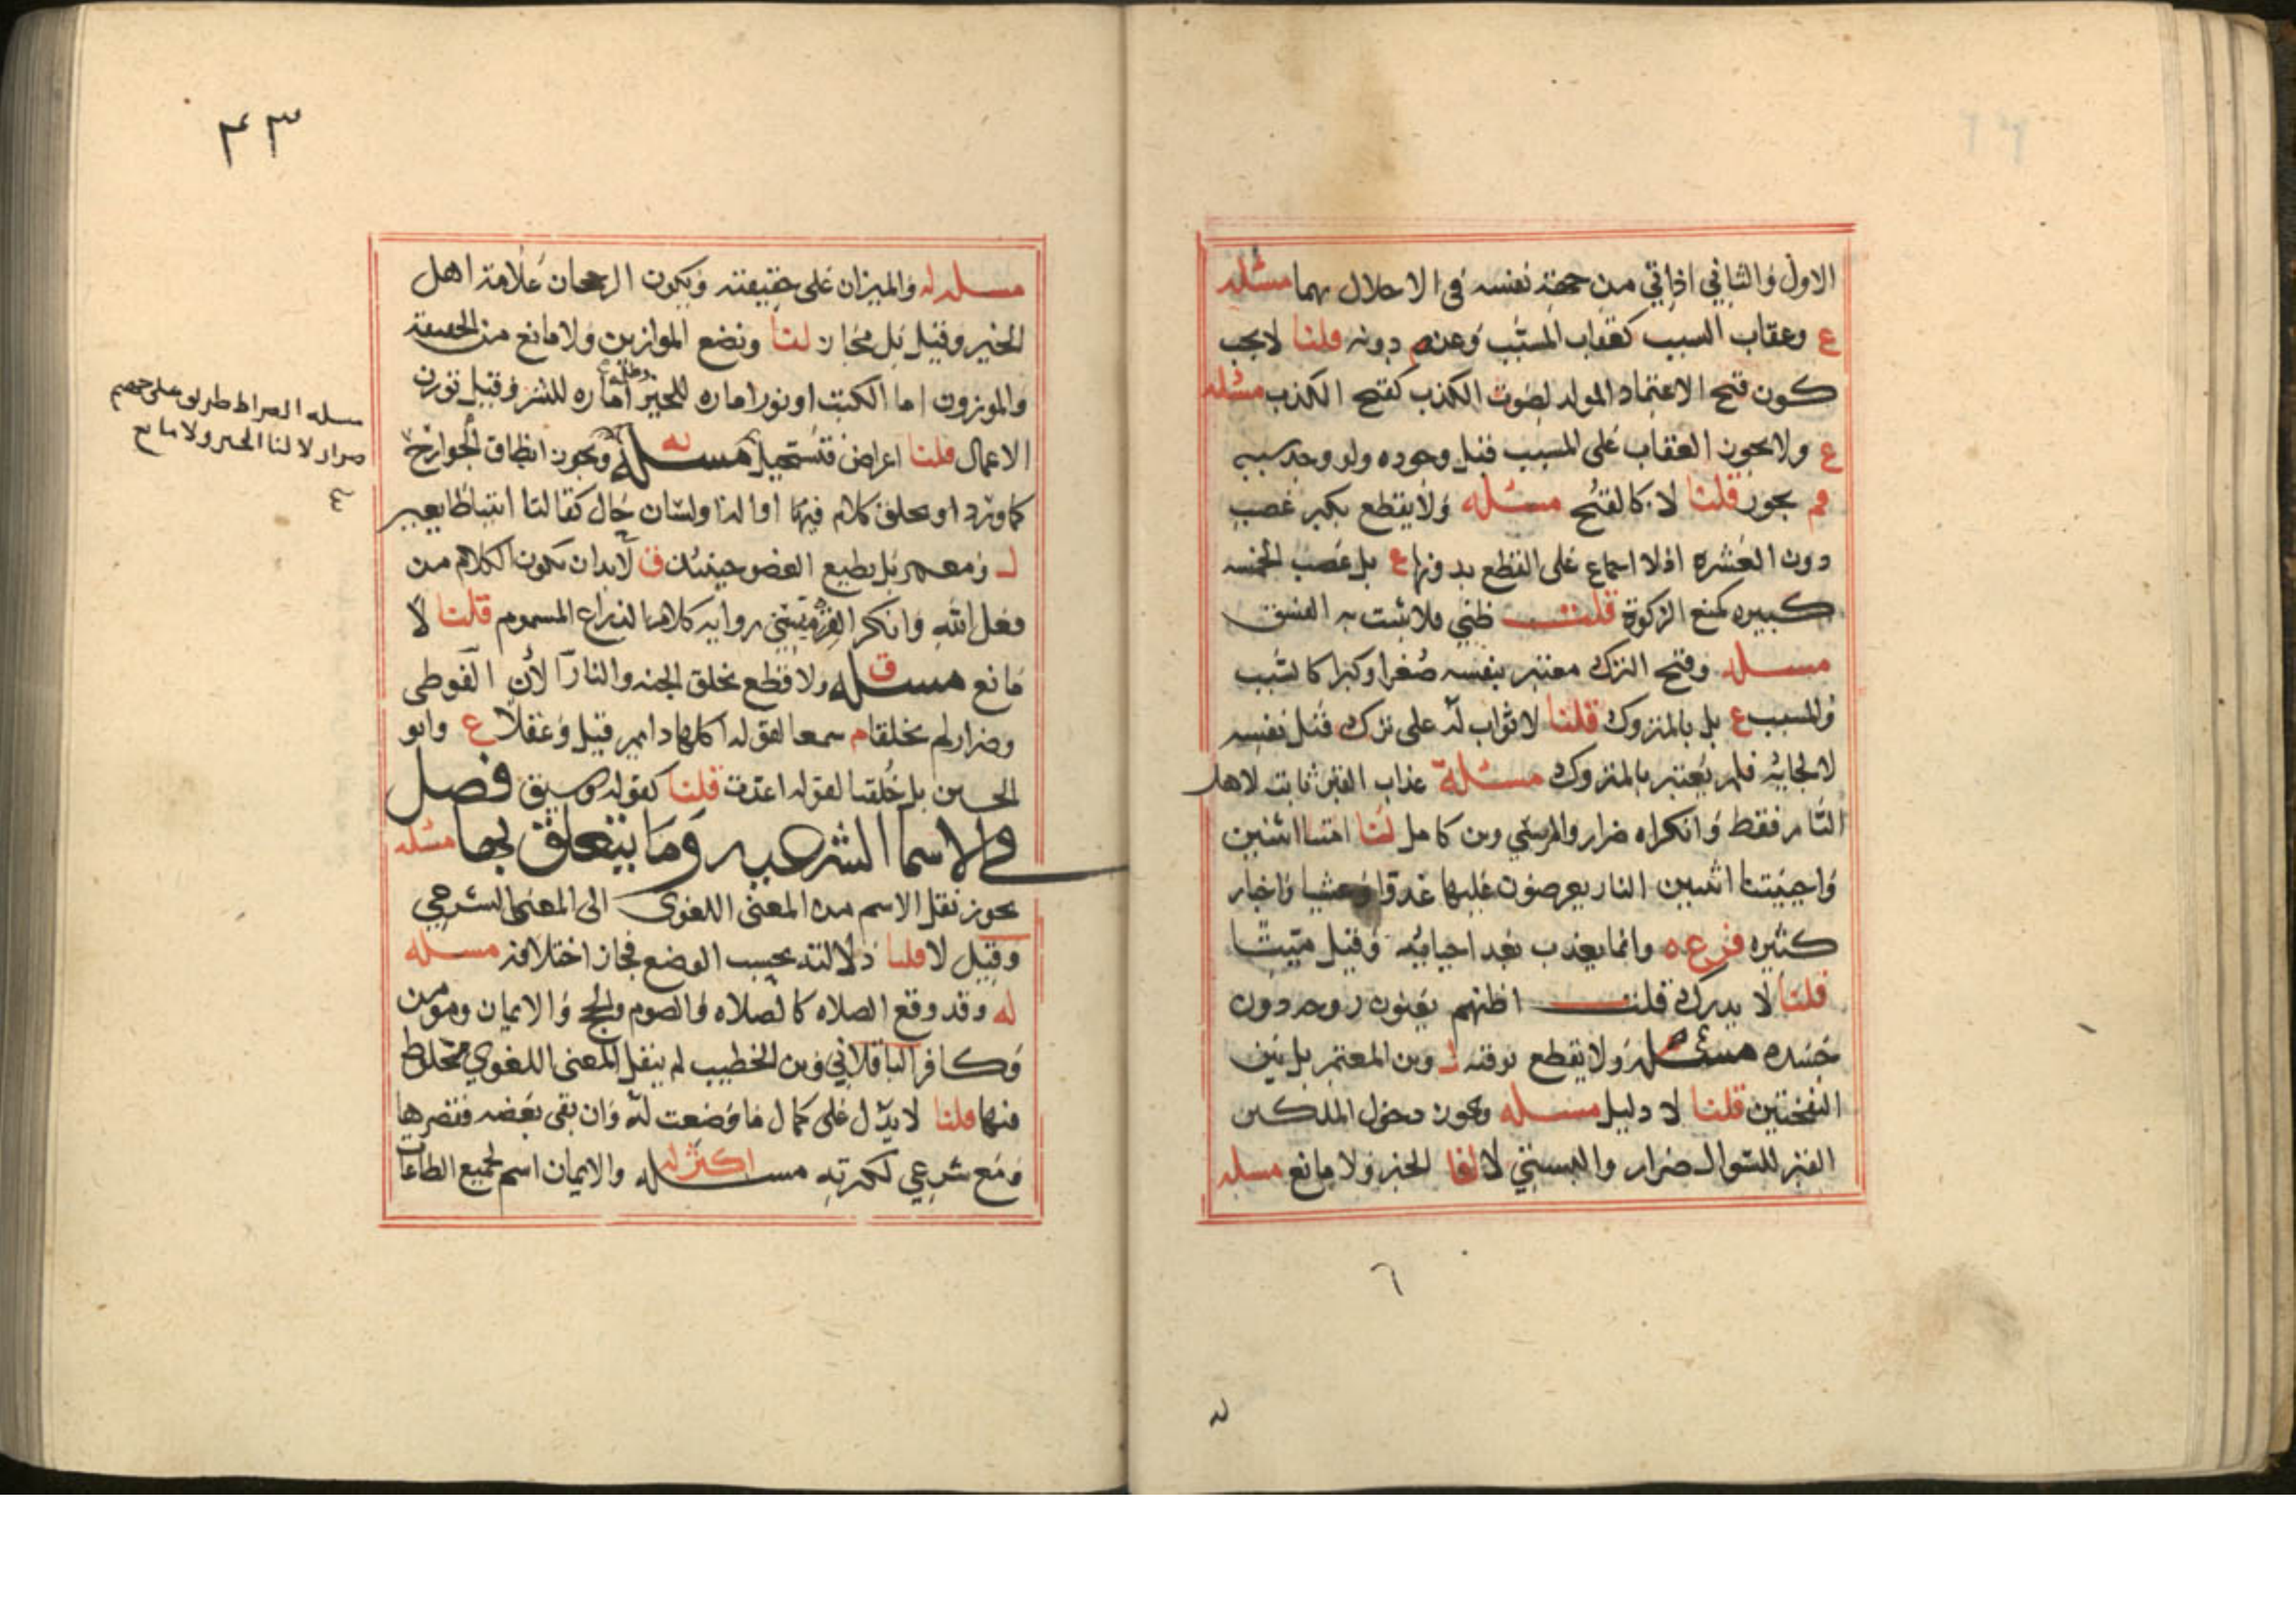 الاول والثاني اذ اتي من جهة نفسه في الاخلال بهما مسئله
ع وعقاب السبب كعقاب المسبب وعن م دونه قلنا لا يجب
كون قبح الاعتماد المولد لصوت الكذب كقبح الكذب مسئله
ع ولا يجوز العقاب على المسبب قبل وجوده ولو وجد سببه
م يجوز قلنا لا كالقبح مسئله ولا يقطع بكبر غصب
دون العشره اذ لا اجماع على القطع بدونها ع بل غصب الخمسه
كبيره كمنع الزكوة قلت ظني فلا يثبت به الفسق
مسله وقبح الترك معتبر بنفسه صغرا وكبرا كالسبب
والمسبب ع بل بالمتروك قلنا لا ثواب له على ترك قتل نفسه
لالجايه فلم يعتبر بالمتروك مسئلة عذاب القبر ثابت لاهل
النار فقط وانكراه ضرار والمريسي وبن كامل لنا امتنا اثنتين
واحييتنا اثنتين النار يعرضون عليها غدوا وعشيا واخبار
كثيره فرع ه وانما يعذب بعد احيائه وقيل ميتا
قلنا لا يدرك قلت اظنهم يعنون روحه دون
جسده مسئله ولا نقطع بوقته ل وبن المعتمر بل بين
النفختين قلنا لا دليل مسئله ويجوز دخول الملكين
القبر للسوال ضرار والمريسي لا لنا الخبر ولا مانع مسله
٤٣
مسئله له والميزان على حقيقته ويكون الرجحان علامة اهل
الخير وقيل بل مجاز لنا ونضع الموازين ولا مانع من الحقيقة
والموزون اما الكتب او نور اماره للخير وظلمة اماره للشر وقيل توزن
الاعمال قلنا اعراض فتستحيل مسئله ويجوز انطاق الجوارح
كما ورد او بخلق كلام فيها او الة او لسان حال كقالتا اتينا طايعين
ل ومعمر بل بطبع العضو حينئذ ق لا بد ان يكون الكلام من
فعل الله وانكر روايه كلام الذراع المسموم قلنا لا
مانع مسئله ق ولا قطع بخلق الجنه والنار الان الفوطي
وضرار لم يخلقا م سمعا لقوله اكلها دايم قيل وعقلا ع وابو
الحسين بل خلقتا لقوله اعدت قلنا كقوله وسيق فصل
في الاسما الشرعيه وما يتعلق بها مسئله
يجوز نقل الاسم من المعنى اللغوي الى المعنى الشرعي
وقيل لا قلنا دلالته بحسب الوضع فجاز اختلافه مسئله
له وقد وقع الصلاه كالصلاه والصوم والحج والايمان ومومن
وكافر الباقلاني وبن الخطيب لم ينقل المعنى اللغوي
منها قلنا لا يدل على كمال ما وضعت له وان بقي بعضه فقصرها
ومنع شرعي مسئله اكثر له والايمان اسم لجميع الطاعات
مسله الصراط طريق على جهنم
ضرار لا لنا الخبر ولا مانع